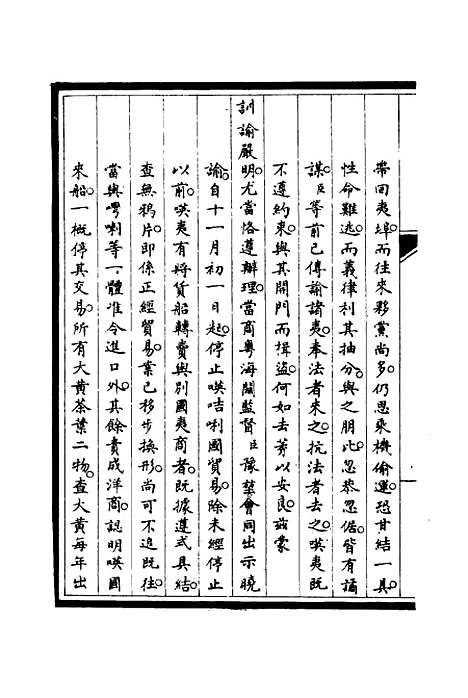 帶回夷埠。而往來夥黨尚多。仍思乘機偷運。恐甘結一具。
性命難逃。而義律利其抽分。與之朋比。忽恭忽倨。皆有譎
謀。臣等前已傳諭諸夷。奉法者來之。抗法者去之。𠸄夷既
不遵約束。與其開門而揖盜。何如去莠以安良。茲蒙
訓諭嚴明。尤當恪遵辦理。當商粵海關監督臣豫堃會同出示曉
諭。自十一月初一日起。停止𠸄咭唎國貿易。除未經停止
以前。𠸄夷有將貨船轉賣與別國夷商者。既據遵式具結。
查無鴉片。即係正經貿易。業已移步換形。尚可不追既往。
當與嘚唎等一體准令進口外。其餘責成洋商。認明𠸄國
來船。一概停其交易。所有大黃茶葉二物。查大黃每年出